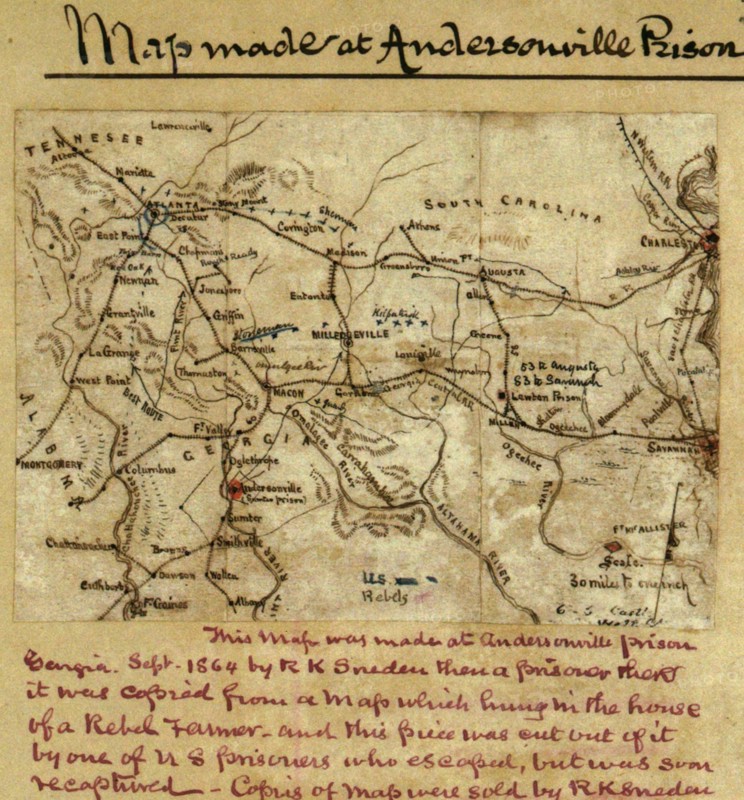 Map made at Andersonville Prison
TENNESEE
Lawrenceville
Marietta
ATLANTA
Decatur
Sherman
Covington
SOUTH CAROLINA
East Point
Athens
CHARLESTON
Madison
Greensboro
Union Pt
AUGUSTA
Ashley Riv
R. R.
Rough & Ready
Newnan
Jonesboro
Eatonton
Grantville
Flint River
Griffin
Stoneman
Kilpatrick
MILLEDGEVILLE
Greene
Barnsville
La Grange
Louisville
53 to Augusta
83 to Savannah
Thomaston
West Point
Best Route
MACON
Gordon
Georgia Central RR
Lawton Prison
MILLEN
Ogeechee
ALABAMA
Ft Vally
GEORGIA
SAVANNAH
MONTGOMERY
Columbus
Oglethorpe
Ogeechee River
Chattahoochee River
Andersonville
Sumter
ALTAHAMA RIVER
Ft McALLISTER
Smithville
Scale.
30 miles to one inch
Dawson
Cuthbert
U.S.
Rebels
Ft Gaines
Albany
This Map was made at Andersonville prison
Georgia. Sept. 1864 by R K Sneden then a prisoner there
it was copied from a Map which hung in the house
of a Rebel Farmer - and this piece was cut out of it
by one of U S prisoners who escaped, but was soon
recaptured - Copies of Map were sold by R K Sneden